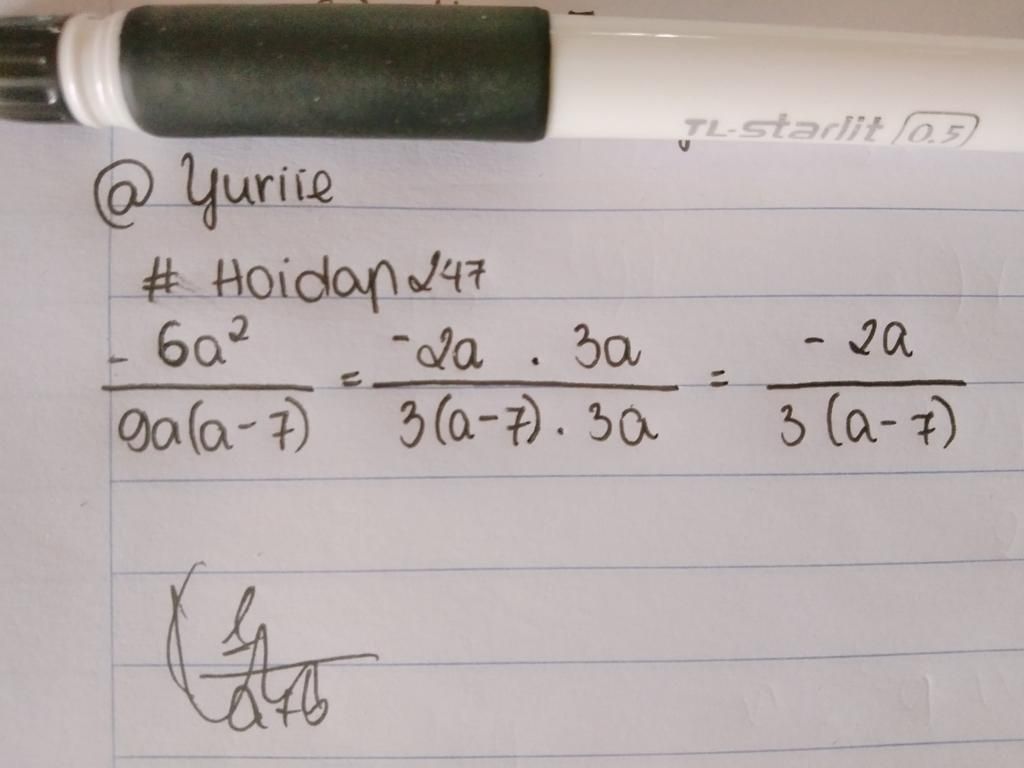 TL-Starlit 0.5
@ Yuriie
# Hoidap247
- 6a² / 9a(a-7) = -2a . 3a / 3(a-7) . 3a = - 2a / 3(a-7)